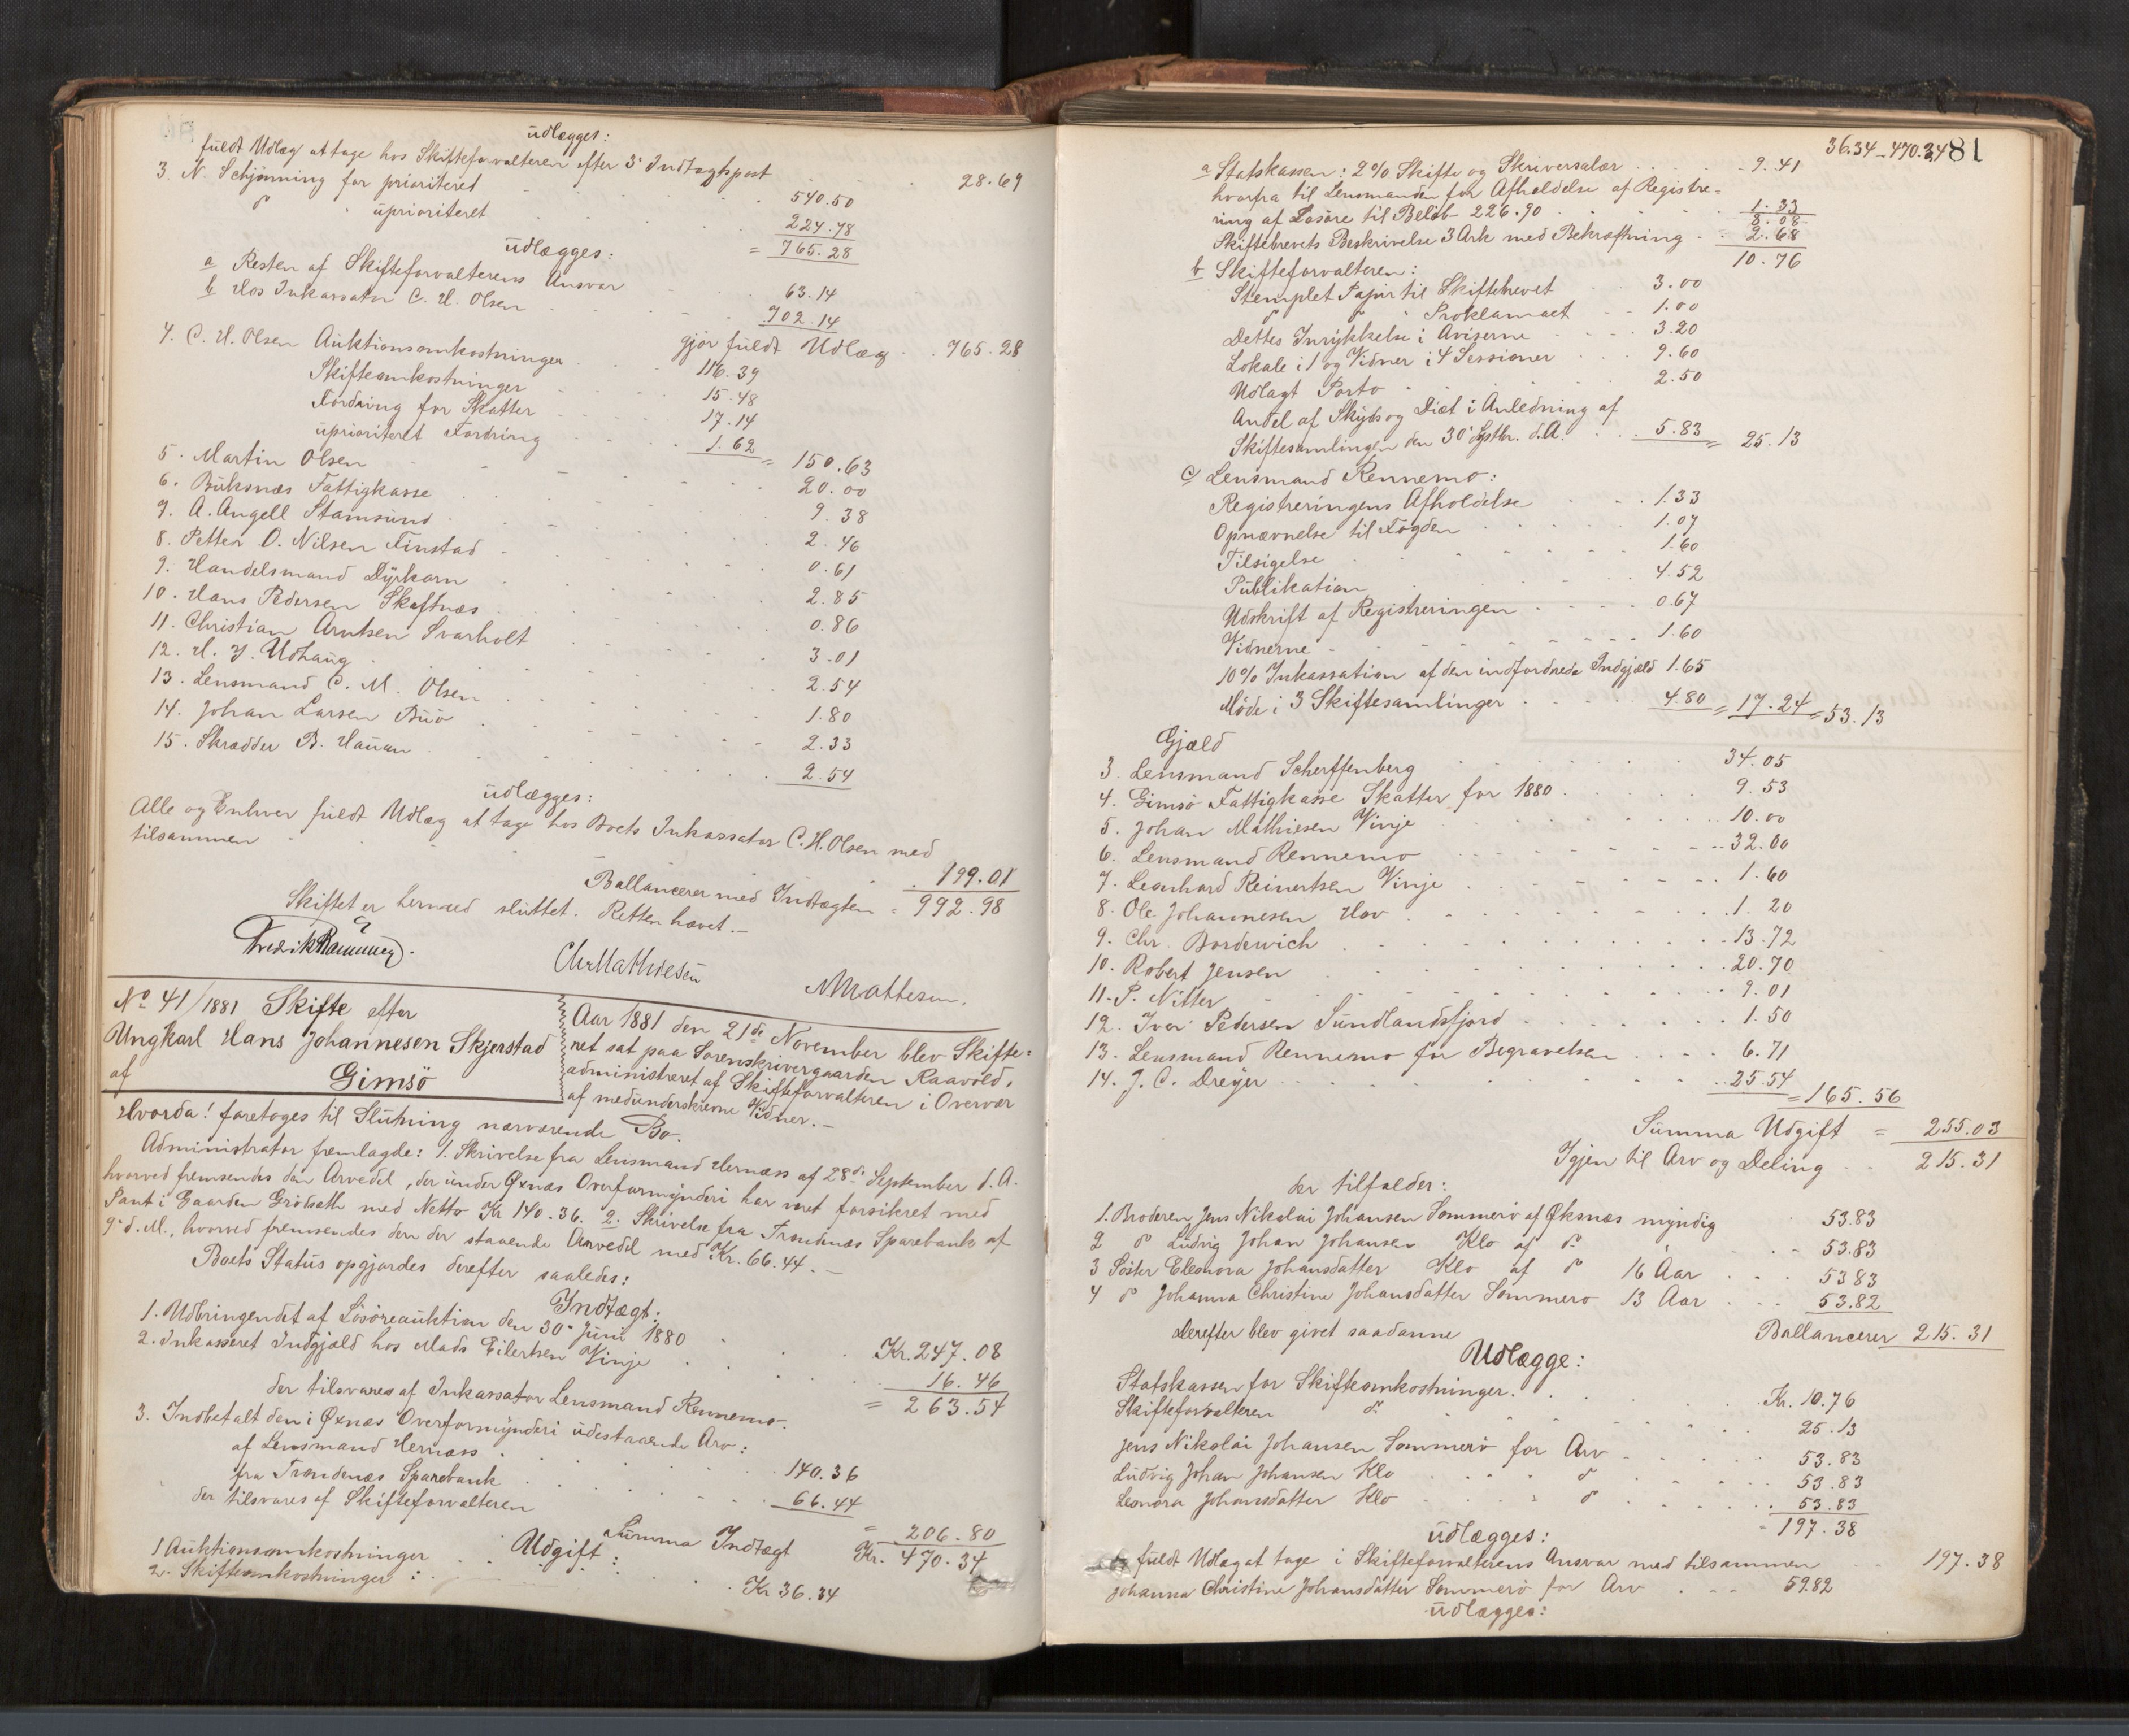 udlægges:
fuldt Udlæg at tage hos Skifteforvalteren efter 3' Indtægtspost . . 28.69
3. N. Schjønning for prioriteret . . 540.50
do uprioriteret . . 224.78
= 765.28
udlægges:
a Resten af Skifteforvalterens Ansvar . . 63.14
b Hos Inkassator C. H. Olsen . . 702.14
gjør fuldt Udlæg . . 765.28
4. C. H. Olsen Auktionsomkostninger . . 116.39
Skifteomkostninger . . 15.48
Fordring for Skatter . . 17.14
uprioriteret Fordring . . 1.62
= 150.63
5. Martin Olsen . . 20.00
6. Buksnæs Fattigkasse . . 9.38
7. A. Angell Stamsund . . 2.46
8. Petter O. Nilsen Finstad . . 0.61
9. Handelsmand Dyrkorn . . 2.85
10. Hans Pedersen Skaftnæs . . 0.86
11. Christian Arntsen Svarholt . . 3.01
12. H. J. Udhaug . . 2.54
13. Lensmand C. M. Olsen . . 1.80
14. Johan Larsen Buö . . 2.33
15. Skrædder B. Hauan . . 2.54
udlægges:
Alle og Enhver fuldt Udlæg at tage hos Boets Inkassator C. H. Olsen med
tilsammen . . 199.01
Ballancerer med Indtægten = 992.98
Skiftet er hermed sluttet. Retten hævet.—
ChrMathiesen
NMattesen.
No 41/1881 Skifte efter
Ungkarl Hans Johannesen Skjerstad
af Gimsö
Aar 1881 den 21de November blev Skifte=
ret sat paa Sorenskrivergaarden Raavold,
administreret af Skifteforvalteren i Overvær
af medunderskrevne Vidner.—
Hvorda! foretoges til Slutning nærværende Bo.
Administrator fremlagde: 1. Skrivelse fra Lensmand Hernæss af 28de September d. A.
hvorved fremsendes den Arvedel, der under Øxnæs Overformynderi har været forsikret med
Pant i Gaarden Grödseth med Netto Kr 140.36. 2. Skrivelse fra Trondenæs Sparebank af
9' d. M., hvorved fremsendes den der staaende Arvedel med Kr. 66.44.—
Boets Status opgjordes derefter saaledes:
Indtægt:
1. Udbringendet af Lösöreauktion den 30' Juni 1880 . . Kr. 247.08
2. Inkasseret Indgjæld hos Mads Eilertsen Vinje . . 16.46
der tilsvares af Inkassator Lensmand Rennemo. = 263.54
3. Indbetalt den i Øxnæs Overformynderi udestaaende Arv:
af Lensmand Hernæss . . 140.36
fra Trondenæs Sparebank . . 66.44
der tilsvares af Skifteforvalteren = 206.80
Summa Indtægt Kr. 470.34
Udgift:
1 Auktionsomkostninger . . Kr 36.34
2. Skifteomkostninger:
36.34 – 470.34 81
a Statskassen: 2% Skifte og Skriversalær . . 9.41
hvorfra til Lensmanden for Afholdelse af Registre=
ring af Løsöre til Beløb 226.90 . . 1.33
8.08
Skiftebrevets Beskrivelse 3 Ark med Bekræftning . . 2.68
10.76
b Skifteforvalteren:
Stemplet Papir til Skiftebrevet . . 3.00
do do Proklamaet . . 1.00
Dettes Inrykkelse i Aviserne . . 3.20
Lokale i 1 og Vidner i 4 Sessioner . . 9.60
Udlagt Porto . . 2.50
Andel af Skyds og Diæt i Anledning af
Skiftesamlingen den 30' Septbr. d.A. . . 5.83 = 25.13
c Lensmand Rennemo:
Registreringens Afholdelse . . 1.33
Opnævnelse til Fogden . . 1.07
Tilsigelse . . 1.60
Publikation . . 4.52
Udskrift af Registreringen . . 0.67
Vidnerne . . 1.60
10% Inkassation af den indfordrede Indgjæld 1.65
Møde i 3 Skiftesamlinger . . 4.80 = 17.24 = 53.13
Gjæld
3. Lensmand Scherffenberg . . 34.05
4. Gimsö Fattigkasse Skatter for 1880 . . 9.53
5. Johan Mathiesen Vinje . . 10.00
6. Lensmand Rennemo . . 32.00
7. Leonhard Reinertsen Vinje . . 1.60
8. Ole Johannesen Hov . . 1.20
9. Chr. Bordewich . . 13.72
10. Robert Jensen . . 20.70
11. P. Nitter . . 9.01
12. Iver Pedersen Sundlandsfjord . . 1.50
13. Lensmand Rennemo for Begravelsen . . 6.71
14. J. C. Dreyer . . 25.54
= 165.56
Summa Udgift = 255.03
Igjen til Arv og Deling . . 215.31
der tilfalder:
1. Broderen Jens Nikolai Johansen Sommerö af Øksnæs myndig 53.83
2 do Ludvig Johan Johansen Klo af do . . 53.83
3 Søster Eleonora Johansdatter Klo af do 16 Aar . . 53.83
4 do Johanna Christine Johansdatter Sommerö 13 Aar . . 53.82
Ballancerer 215.31
Derefter blev givet saadanne
Udlægge:
Statskassen for Skifteomkostninger. . . Kr. 10.76
Skifteforvalteren do . . 25.13
Jens Nikolai Johansen Sommerö for Arv . . 53.83
Ludvig Johan Johansen Klo . . do . . 53.83
Leonora Johansdatter Klo . . do . . 53.83
197.38
udlægges:
fuldt Udlæg at tage i Skifteforvalterens Ansvar med tilsammen . . 197.38
Johanna Christine Johansdatter Sommerö for Arv . . 59.82
udlægges: